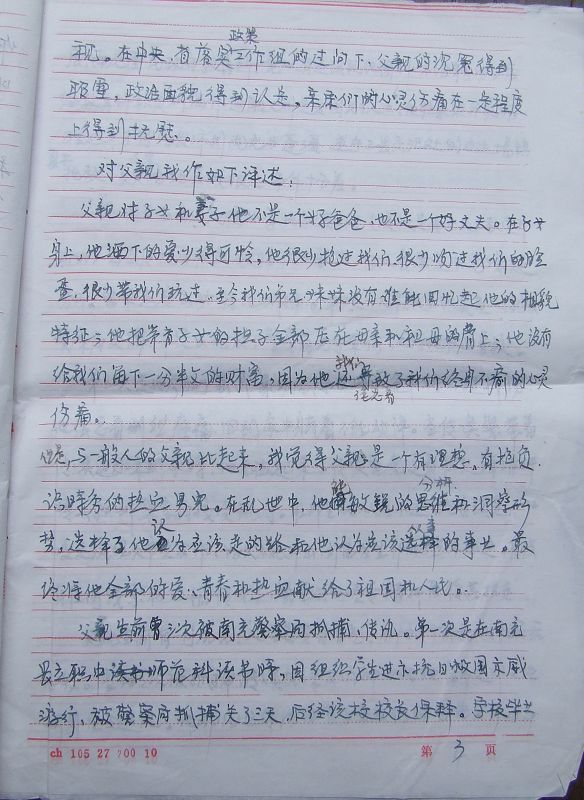 政策
视。在中央、省落实工作组的过问下、父亲的沉冤得到
昭雪，政治面貌得到认定，亲朵们的心灵伤痛在一定程度
上得到抚慰。
对父亲我作如下评述：
父亲对子女和妻子他不是一个好爸爸，也不是一个好丈夫。在子女
身上，他洒下的爱少得可怜，他很少抱过我们、很少吻过我们的脸
蛋，很少带我们玩过、至今我们弟兄妹妹没有谁能回忆起他的相貌
特征；他把养育子女的担子全部压在母亲和祖母的肩上；他没有
我们
给我们留下一分半文的财富，因为他还导致了我们终身不痛的心灵
伤痛。
但是，与一般人的父亲比起来，我觉得父亲是一个有理想、有抱负、
分析
识时务的热血男儿。在乱世中，他敏锐的思维和洞察形
认 从事
势，选择了他认为应该走的路和他认为应该选择的事业。最
终将他全部的爱、青春和热血献给了祖国和人民。
父亲生前曾三次被南充警察局抓捕、传讯。第一次是在南充
县立职中读书师范科读书时，因组织学生进示抗日救国示威
游行，被警察局抓捕关了三天，后经该校校长保释。学校毕业
ch 105 27 700 10
第 3 页